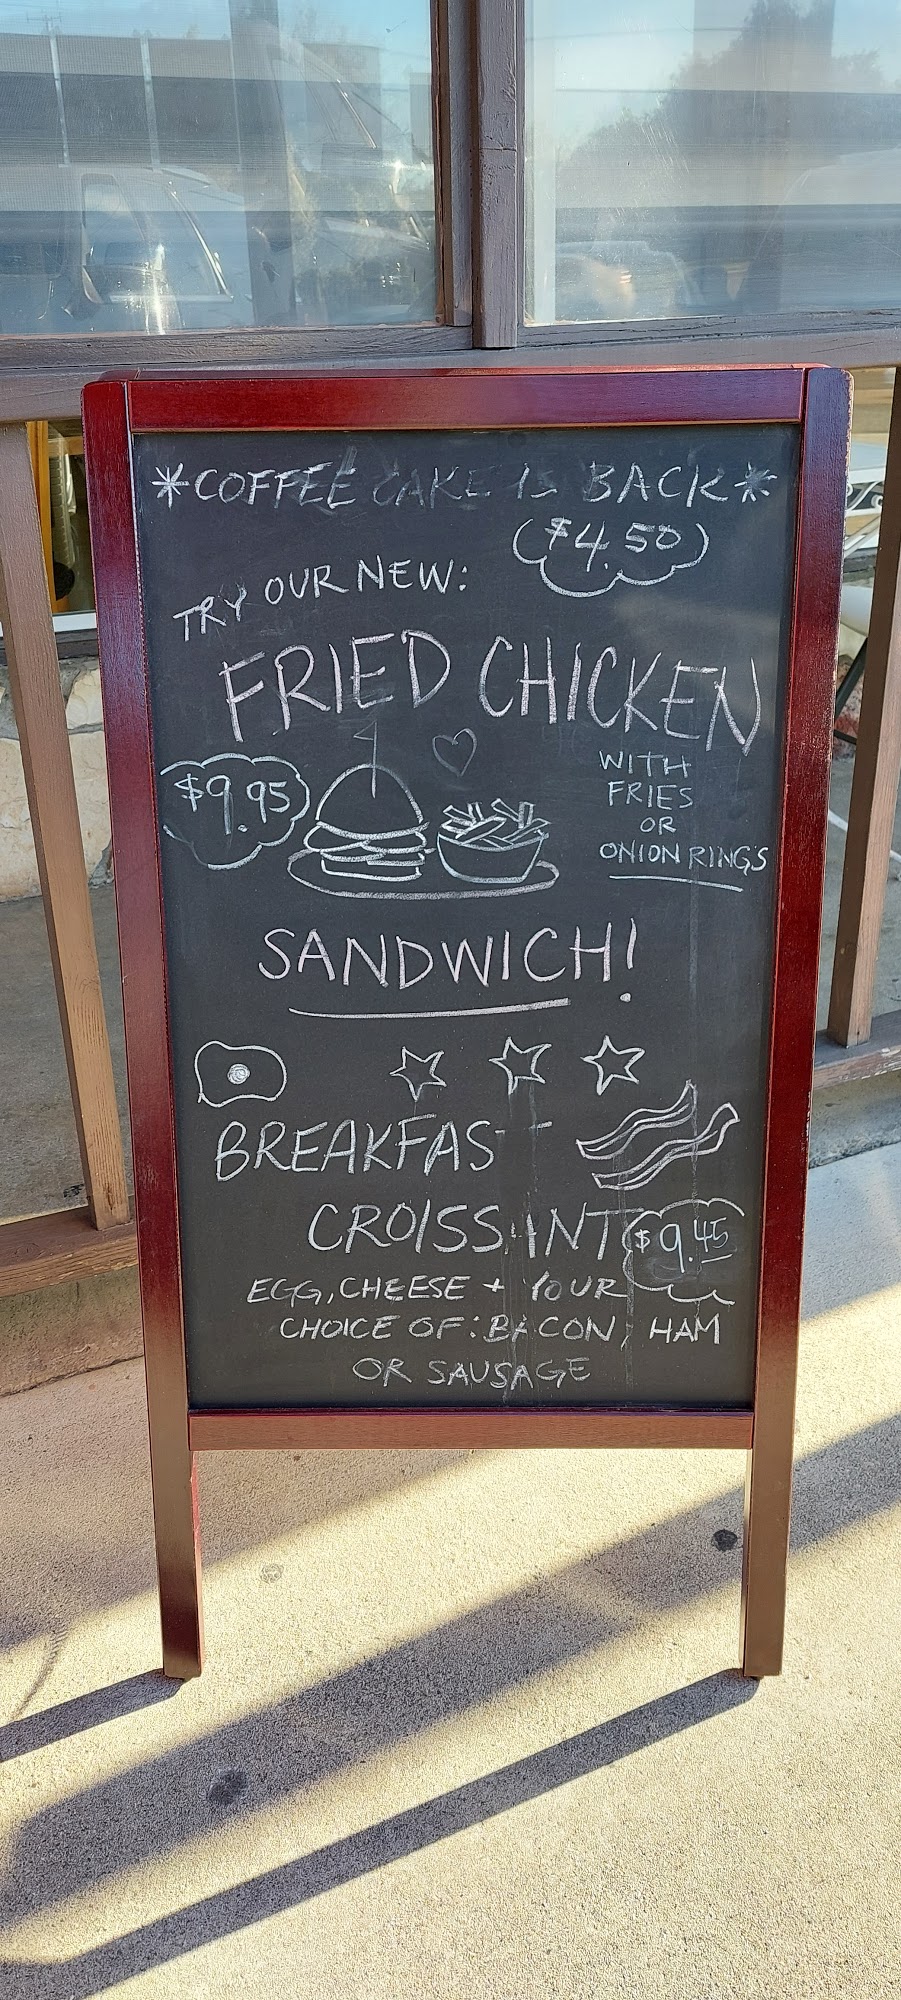 *COFFEE CAKE IS BACK*
($4.50)
TRY OUR NEW:
FRIED CHICKEN
$9.95
WITH
FRIES
OR
ONION RING'S
SANDWICH!
BREAKFAST
CROISSANT
$9.45
EGG, CHEESE + YOUR
CHOICE OF: BACON, HAM
OR SAUSAGE